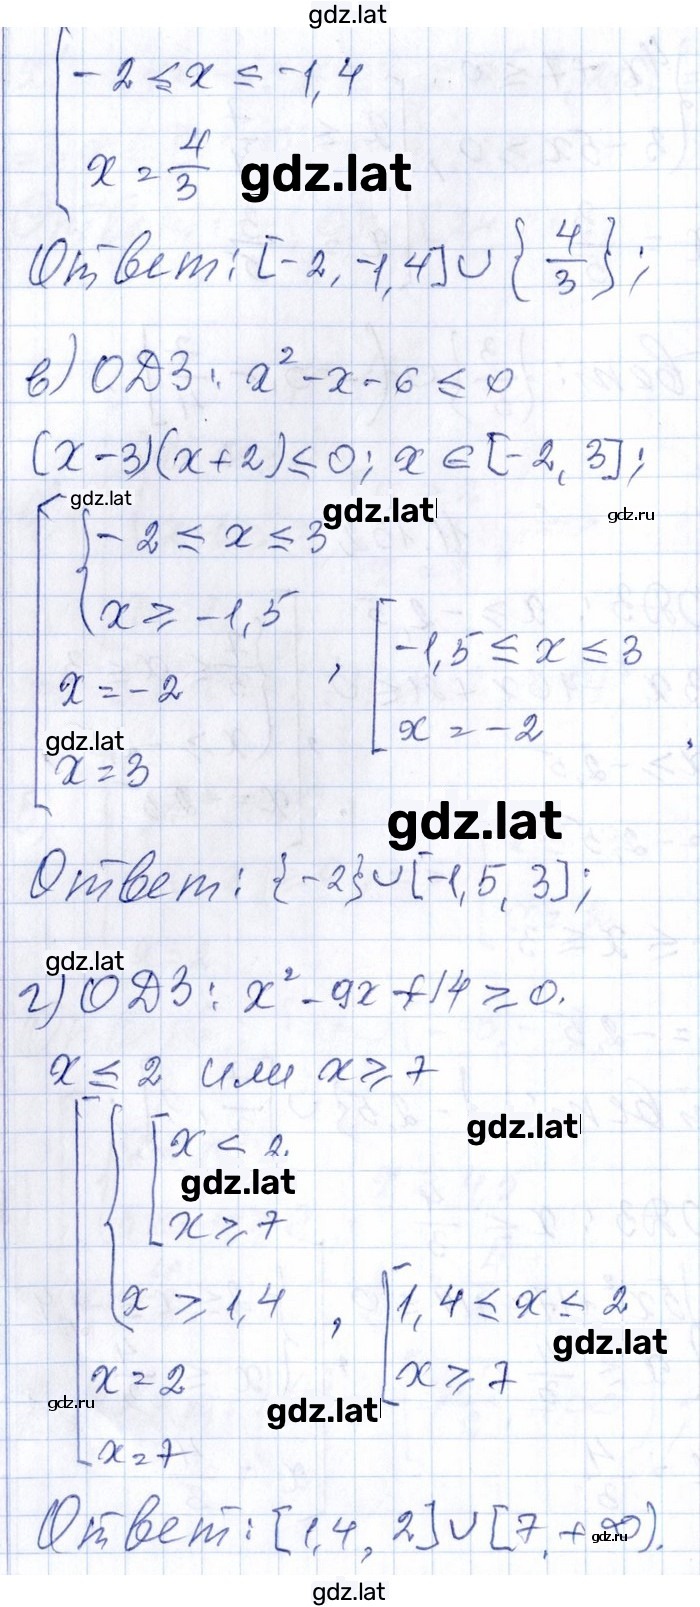 gdz.lat
-2 ≤ x ≤ -1,4
x = 4/3
gdz.lat
Ответ: [-2, -1,4] ∪ {4/3};
в) ОДЗ: x² - x - 6 ≤ 0
(x-3)(x+2) ≤ 0; x ∈ [-2, 3];
gdz.lat
gdz.lat
gdz.ru
-2 ≤ x ≤ 3
x ≥ -1,5
x = -2
, -1,5 ≤ x ≤ 3
x = -2,
gdz.lat
x = 3
gdz.lat
Ответ: {-2} ∪ [-1,5, 3];
gdz.lat
г) ОДЗ: x² - 9x + 14 ≥ 0.
x ≤ 2 или x ≥ 7
gdz.lat
x < 2.
gdz.lat
x ≥ 7
x ≥ 1,4
, 1,4 ≤ x ≤ 2
gdz.lat
x = 2
x ≥ 7
gdz.ru
gdz.lat
x = 7
Ответ: [1,4, 2] ∪ [7, +∞).
gdz.ru
gdz.lat